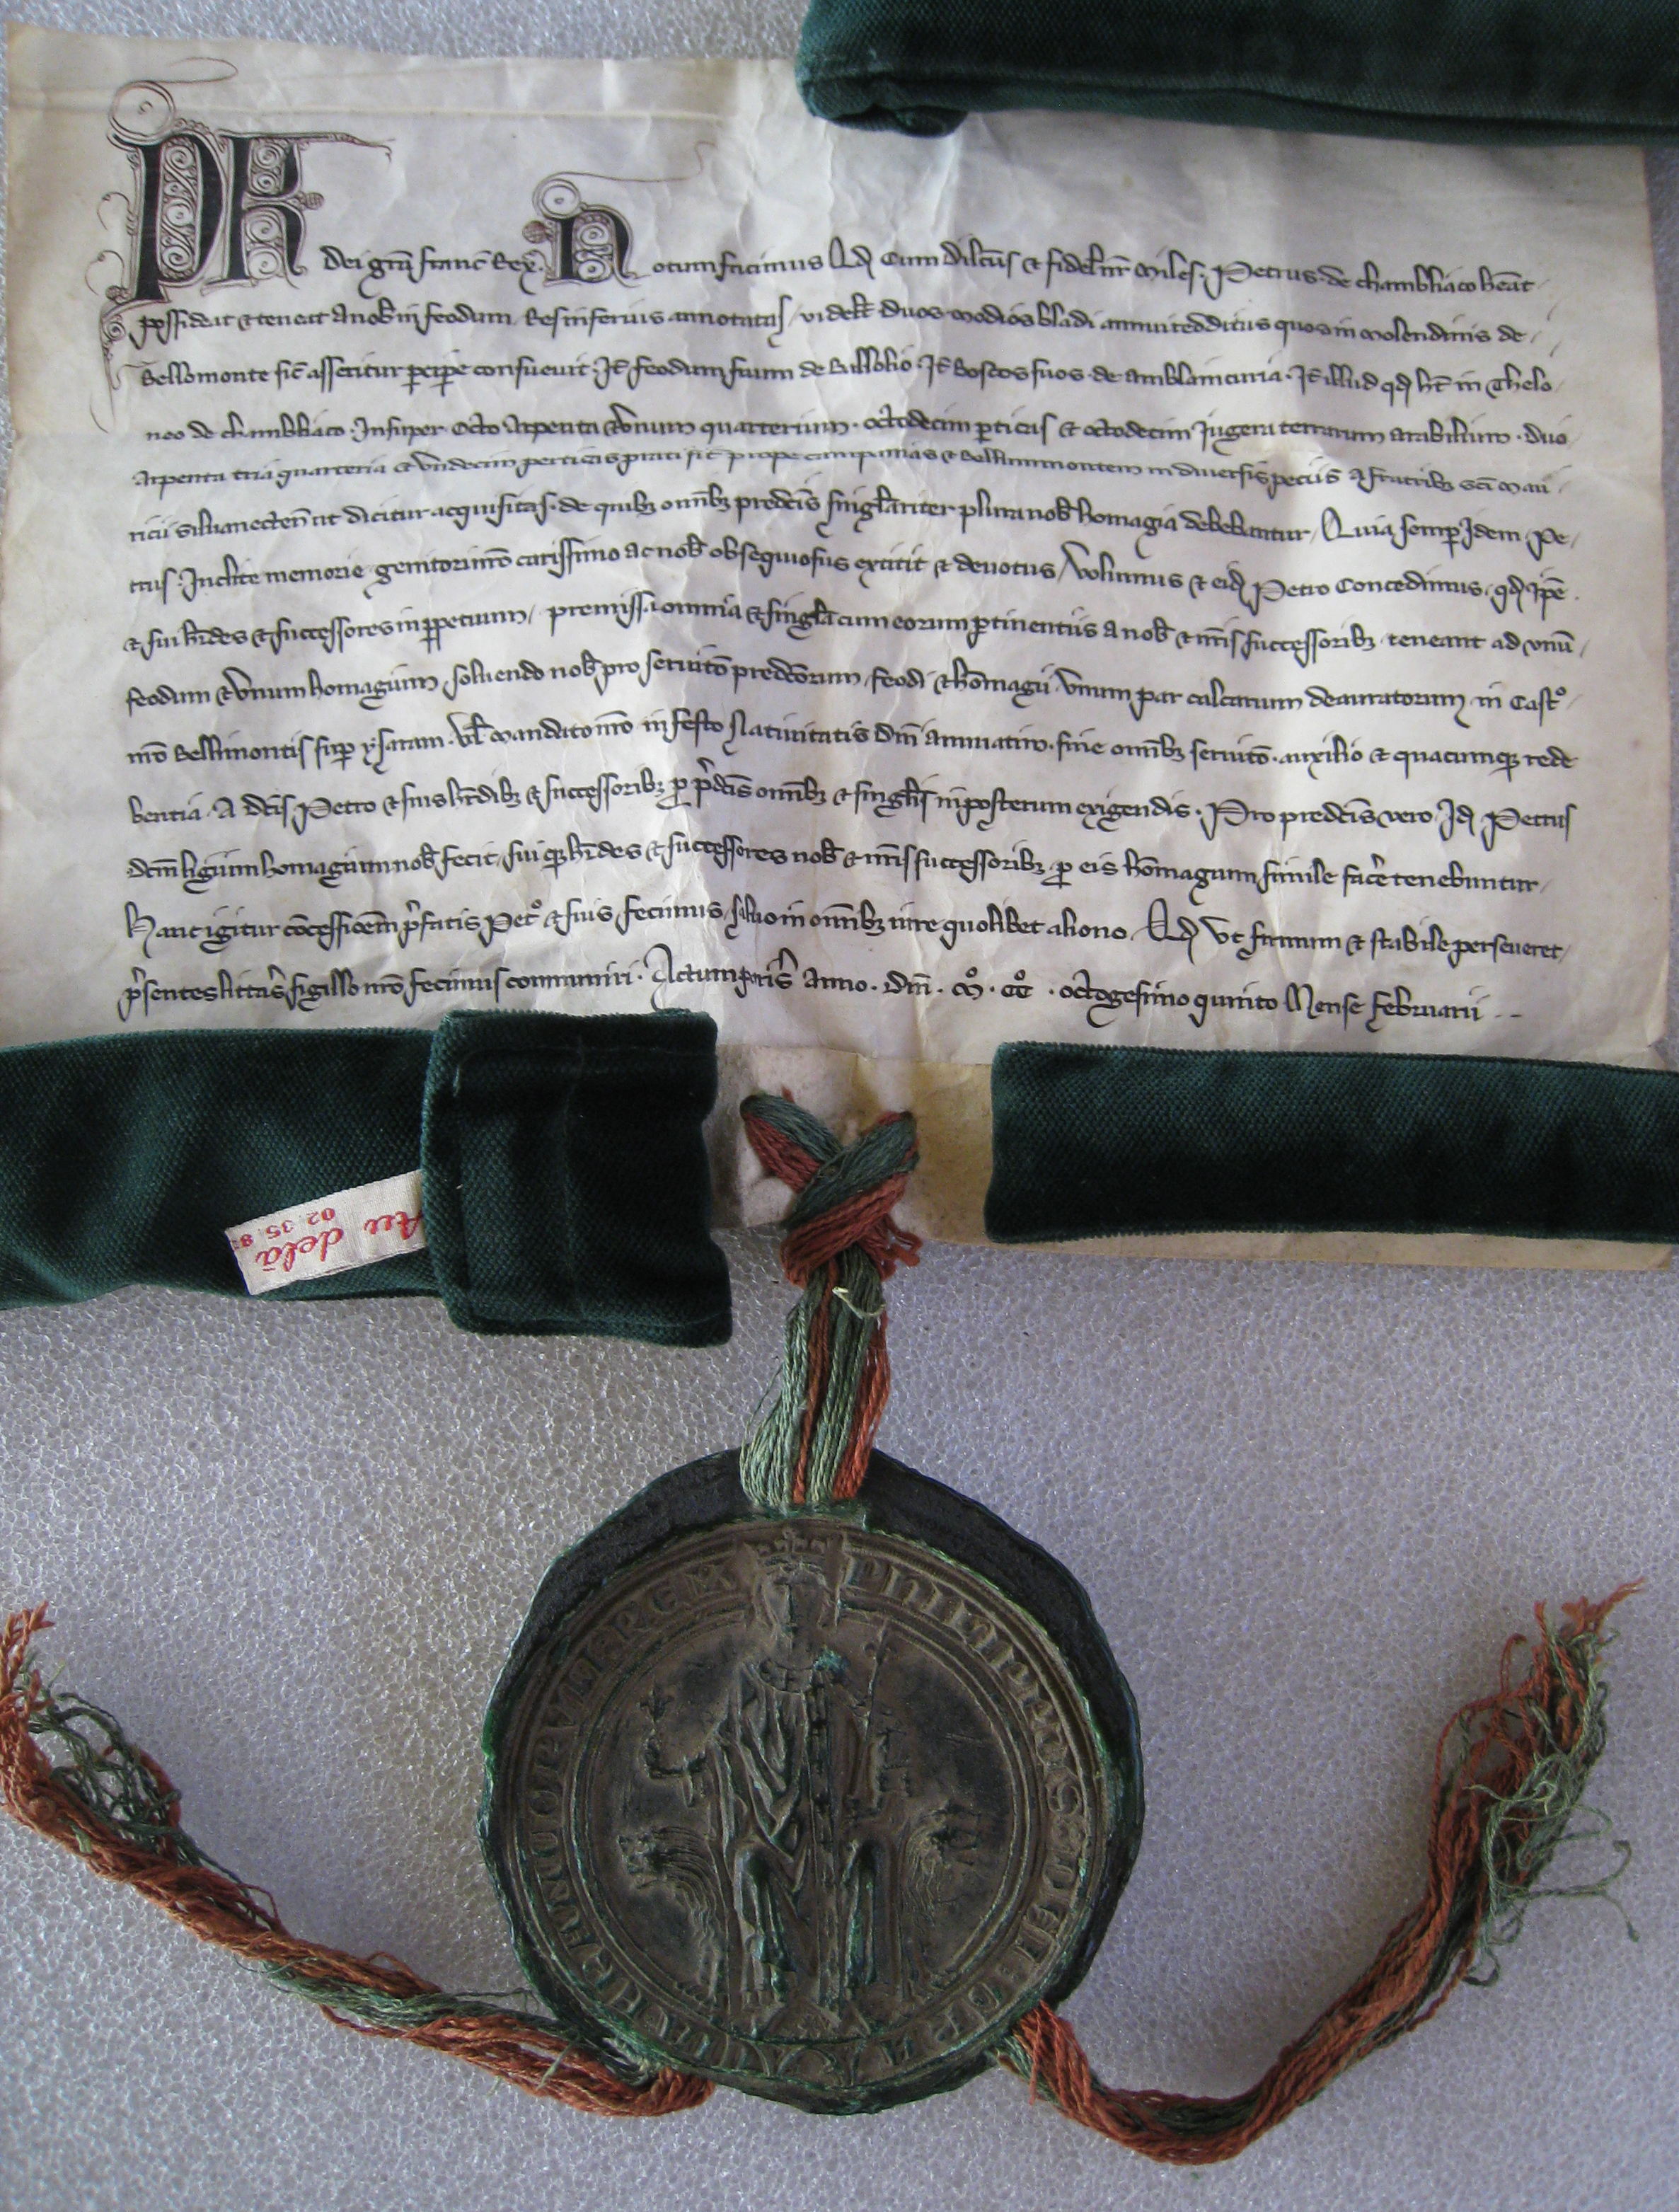 Ph Dei gra franc Rex. Notum facimus Qd Cum Dilcus & fidel nr Miles. Petrus de chambliaco heat
possideat & teneat a nob in feodum Res inferius annotatas videlt duos modios bladi annui redditus quos in molendinis de
Bellomonte sic asseritur percipe consuevit. It feodum suum de Bullolio. It Boscos suos de amblaincuria. It illud qd ht in Thelo
neo de chambliaco. Insuper Octo Arpenta & Unum quarterium. octodecim pticas & octodecim Jugera terrarum arabilium. duo
Arpenta tria quarteria & Undecim perticas prati sit prope campanias & Bellummontem in diversis peciis A fratribz sci Mau
ricii silvanecten ut dicitur acquisitas. de quibz omnibz predcis singlariter plura nob homagia debebantur, Quia semp Idem Pe
trus. Inclite memorie genitori nro carissimo ac nob obsequiosus extitit & devotus, Volumus & eid Petro Concedimus. qd ipe
& sui hrdes & successores in ppetuum, premissa omnia & singla cum eorum ptinentiis a nob & nris successoribz teneant ad unu
feodum & Unum homagium, solvendo nob pro servito predcorum feodi & homagii Unum par calcarum deauratorum in Casto
nro Bellimontis sup ysaram. Vl mandato nro in festo Nativitatis Dni annuatim. sine omnibz servito. auxilio & quacumqz rede
bentia. A dcis Petro & suis hrdibz & successoribz p pdcis omnibz & singlis inposterum exigendis. Pro predcis vero Id Petrus
dcm ligium homagium nob fecit, sui qz hrdes & successores nob & nris successoribz p eis homagium simile facere tenebuntur.
Hanc igitur concessioem pfatis Peto & suis fecimus, salvo in omnibz iure quolibet alieno. Qd Ut firmum & stabile perseveret,
psentes littas sigillo nro fecimus communiri. Actum paris Anno. dni. M. CC . octogesimo quinto Mense februarii
Au delà
02. 35. 8
PHILIPPUS : DEI : GRACIA FRANCORUM : REX